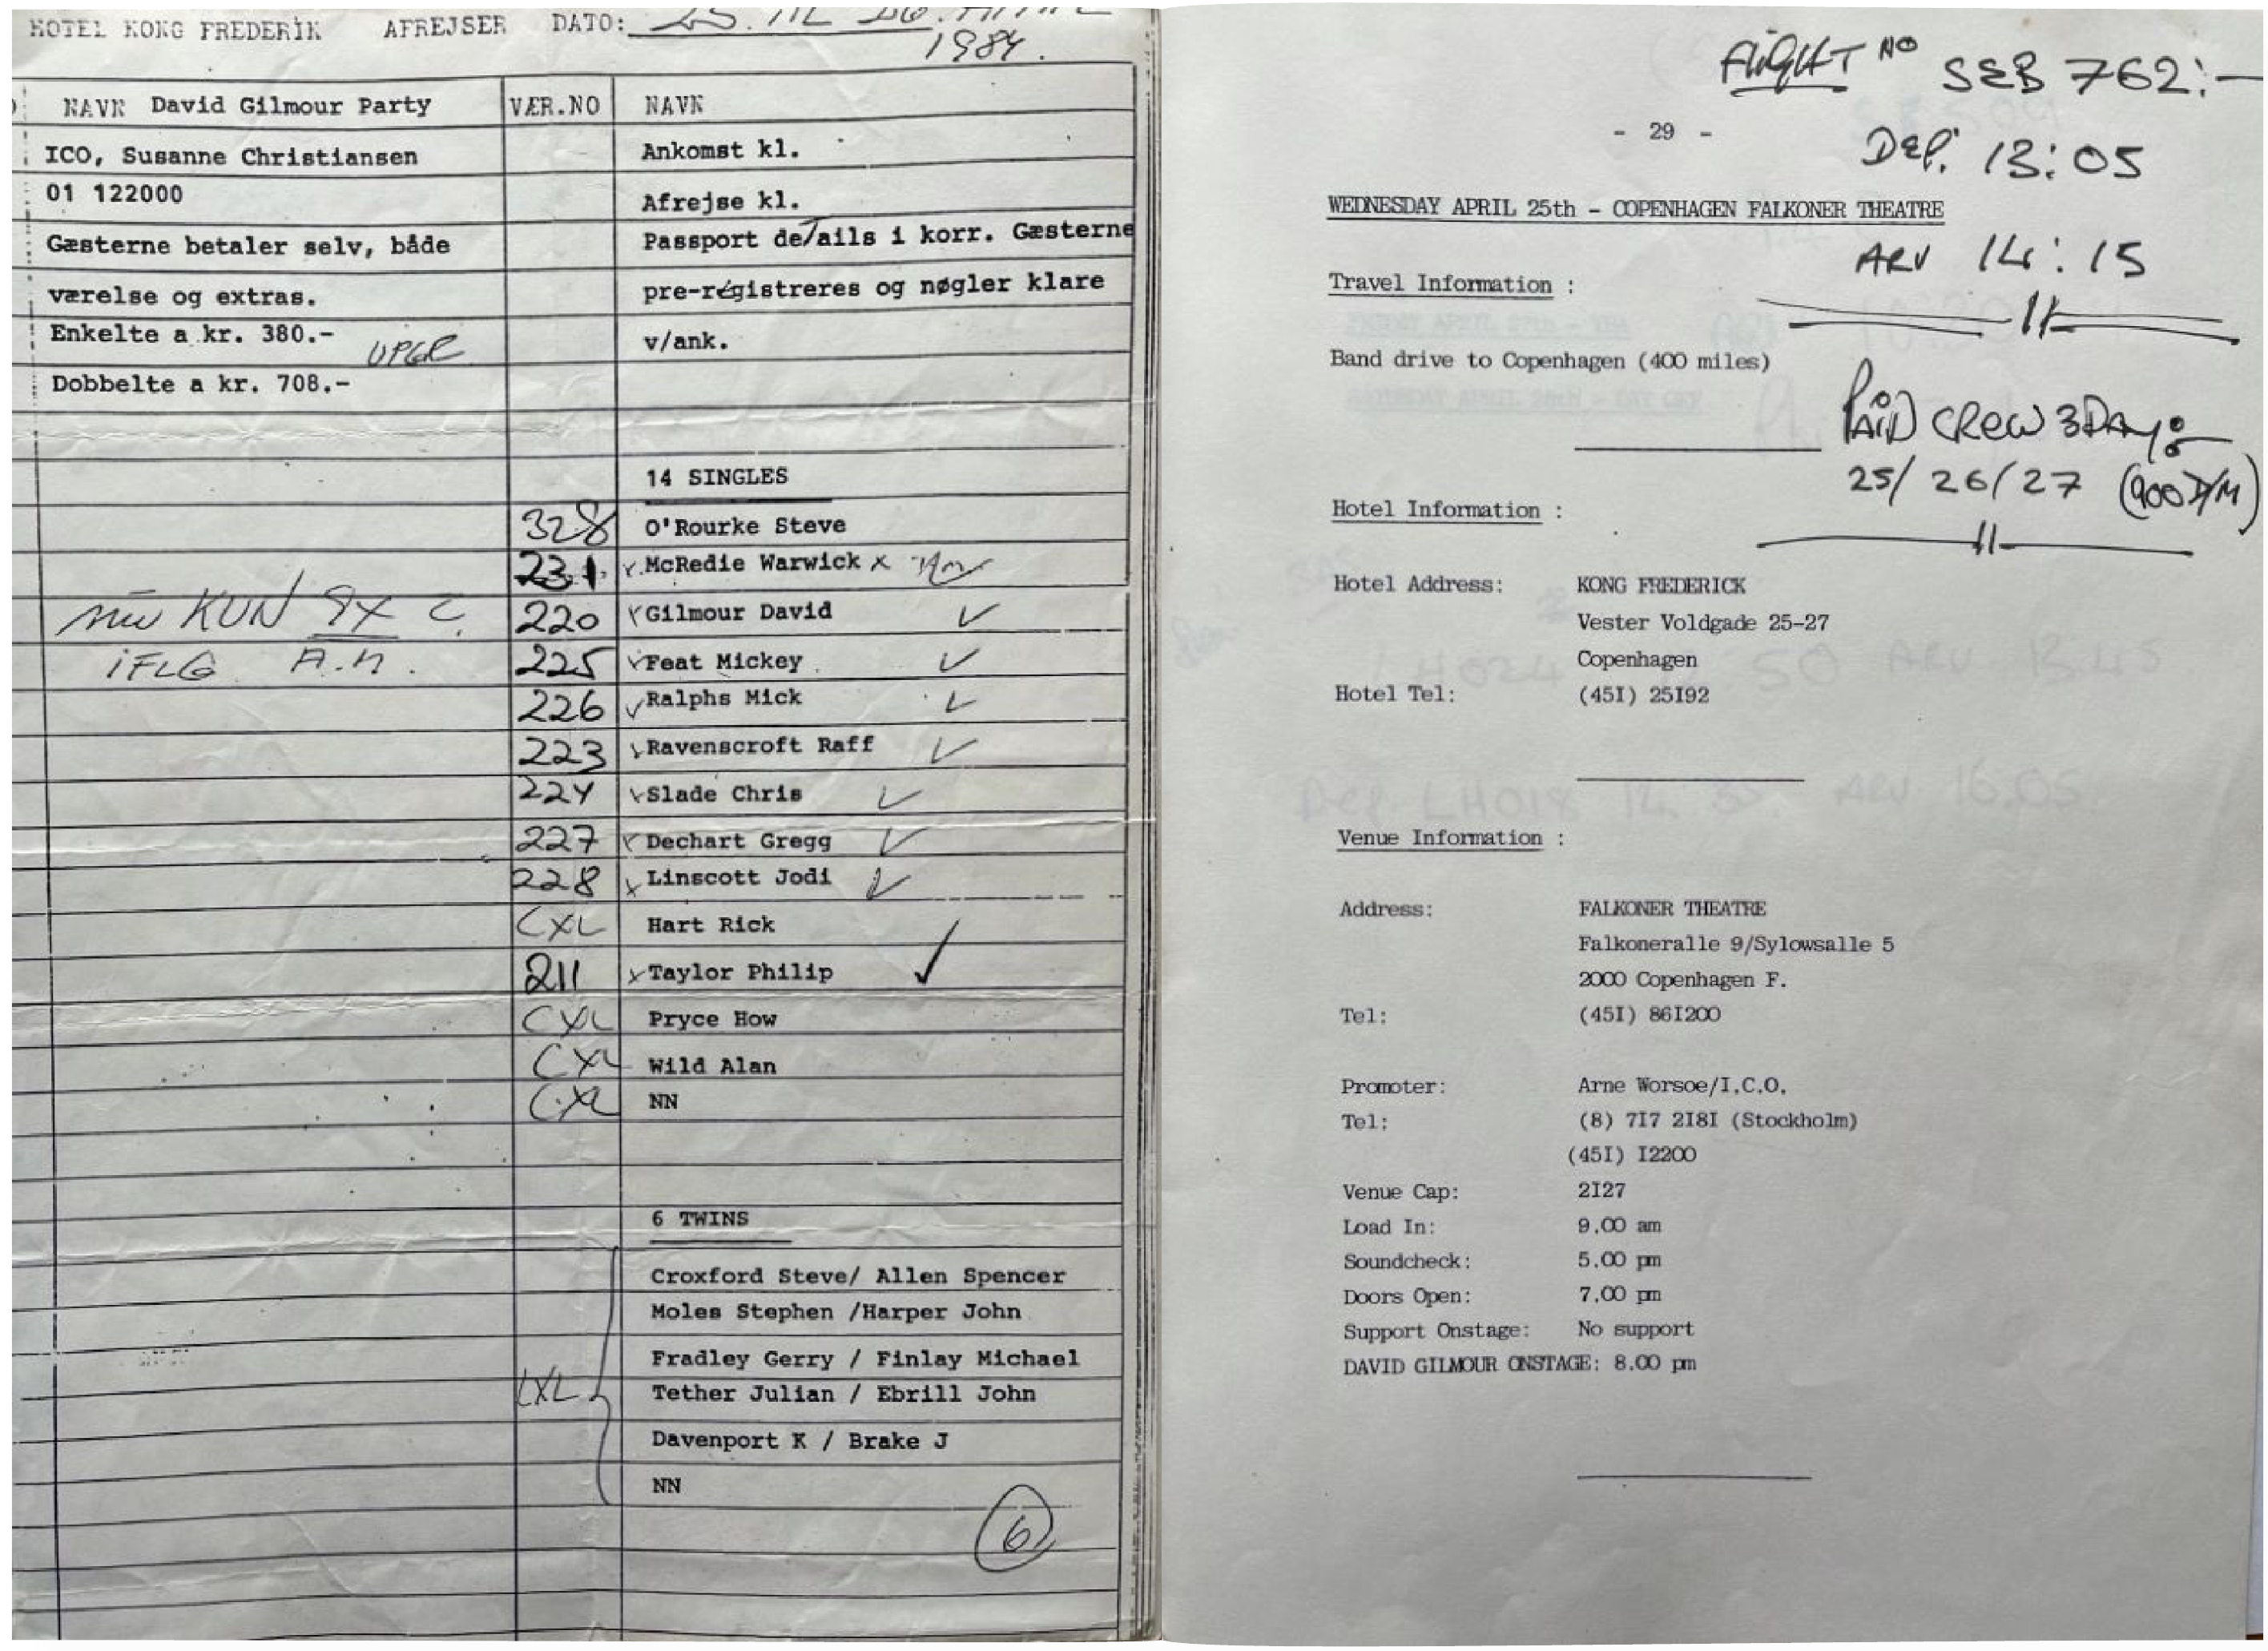 HOTEL KONG FREDERIK AFREJSER DATO: 25. TIL 26. APRIL
1984.
NAVN David Gilmour Party VÆR.NO NAVN
ICO, Susanne Christiansen Ankomst kl.
01 122000 Afrejse kl.
Gæsterne betaler selv, både Passport details i korr. Gæsterne
værelse og extras. pre-registreres og nøgler klare
Enkelte a kr. 380.- UPGR v/ank.
Dobbelte a kr. 708.-
14 SINGLES
328 O'Rourke Steve
231 x McRedie Warwick x
KUN 9X 220 Gilmour David ✓
IFLG A.M. 225 Feat Mickey ✓
226 Ralphs Mick ✓
223 Ravenscroft Raff ✓
224 Slade Chris ✓
227 Dechart Gregg ✓
228 x Linscott Jodi ✓
CXL Hart Rick
211 x Taylor Philip ✓
CXL Pryce How
CXL Wild Alan
CXL NN
6 TWINS
Croxford Steve/ Allen Spencer
Moles Stephen /Harper John
Fradley Gerry / Finlay Michael
CXL Tether Julian / Ebrill John
Davenport K / Brake J
NN
6
FLIGHT NO SEB 762:-
- 29 -
DEP. 13:05
WEDNESDAY APRIL 25th - COPENHAGEN FALKONER THEATRE
ARV 14:15
Travel Information :
Band drive to Copenhagen (400 miles)
PAID CREW 3 DAYS
25/26/27 (900 D/M)
Hotel Information :
Hotel Address: KONG FREDERICK
Vester Voldgade 25-27
Copenhagen
Hotel Tel: (45I) 25I92
LH024 50 ARV 13.45
Dep. LH018 14.35. ARV 16.05.
Venue Information :
Address: FALKONER THEATRE
Falkoneralle 9/Sylowsalle 5
2000 Copenhagen F.
Tel: (45I) 86I200
Promoter: Arne Worsoe/I.C.O.
Tel: (8) 7I7 2I8I (Stockholm)
(45I) I2200
Venue Cap: 2I27
Load In: 9.00 am
Soundcheck: 5.00 pm
Doors Open: 7.00 pm
Support Onstage: No support
DAVID GILMOUR ONSTAGE: 8.00 pm